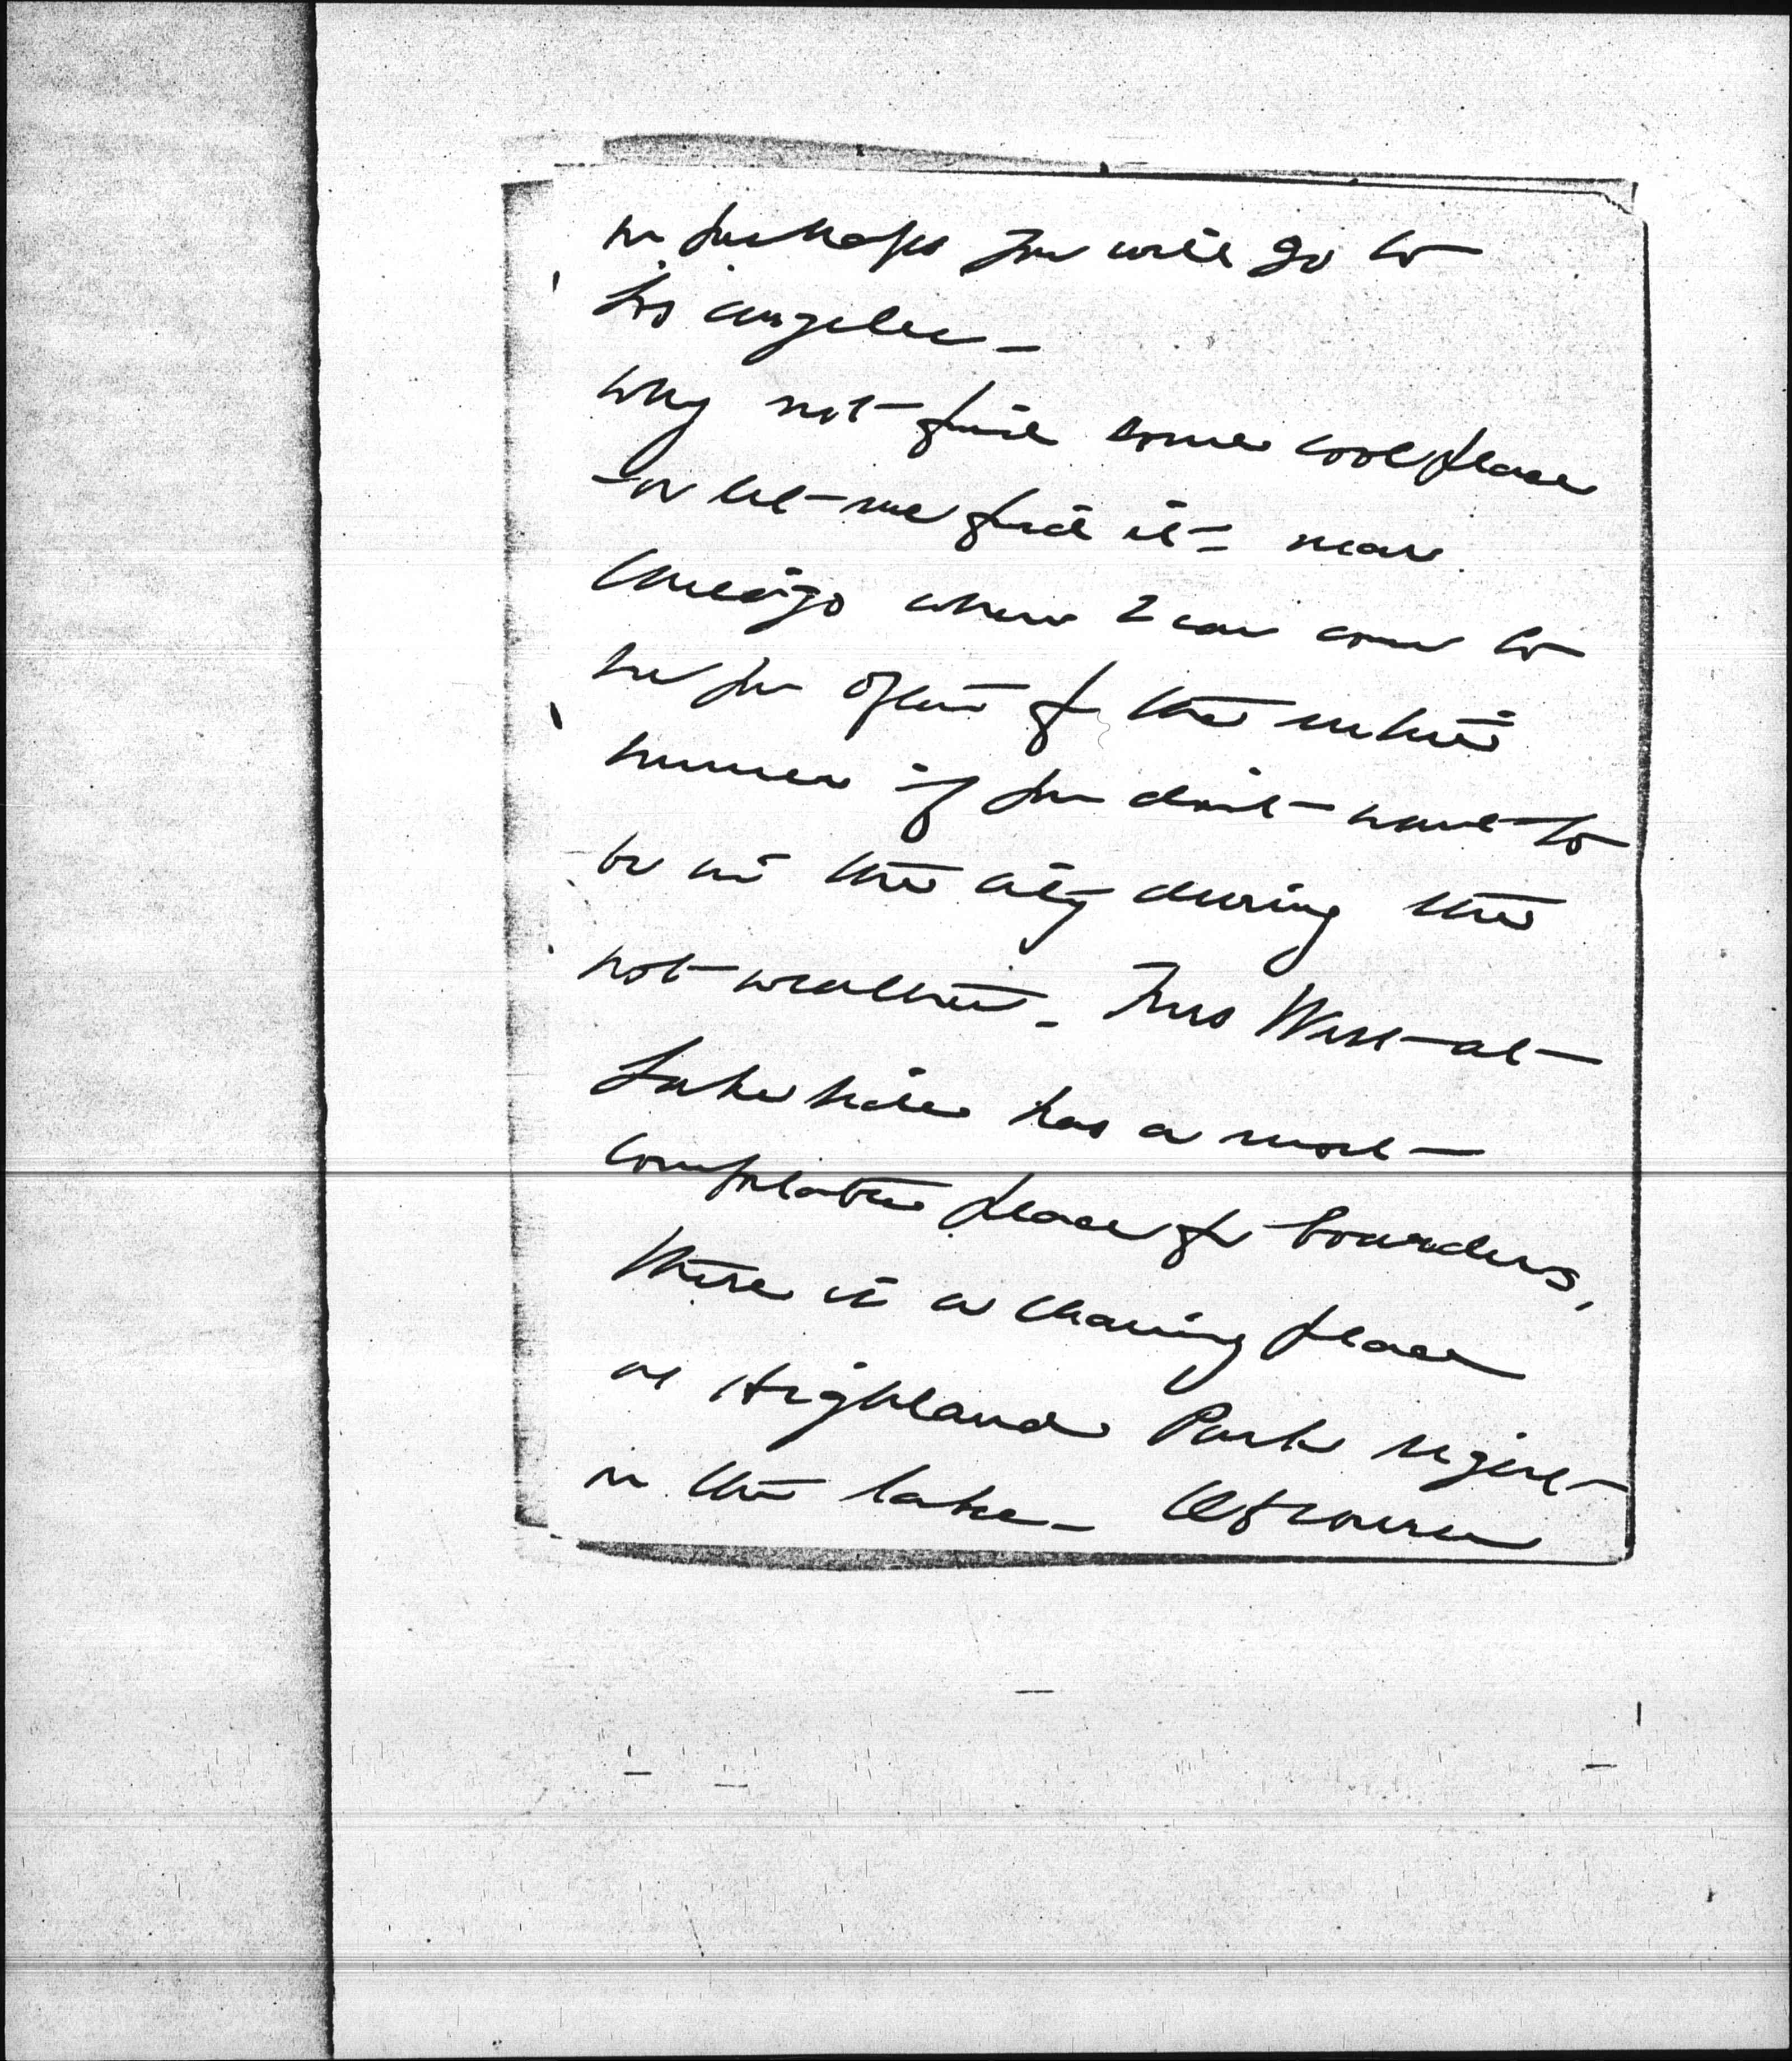 so perhaps you will go to
Los Angeles –
Why not find some cool place
– or let me find it – near
Chicago where I can come to
see you often for the entire
summer if you don't want to
be in the city during the
hot weather – Mrs West at
Lakeside has a most
comfortable place for boarders,
there is a charming place
at Highland Park right
on the lake – Of course